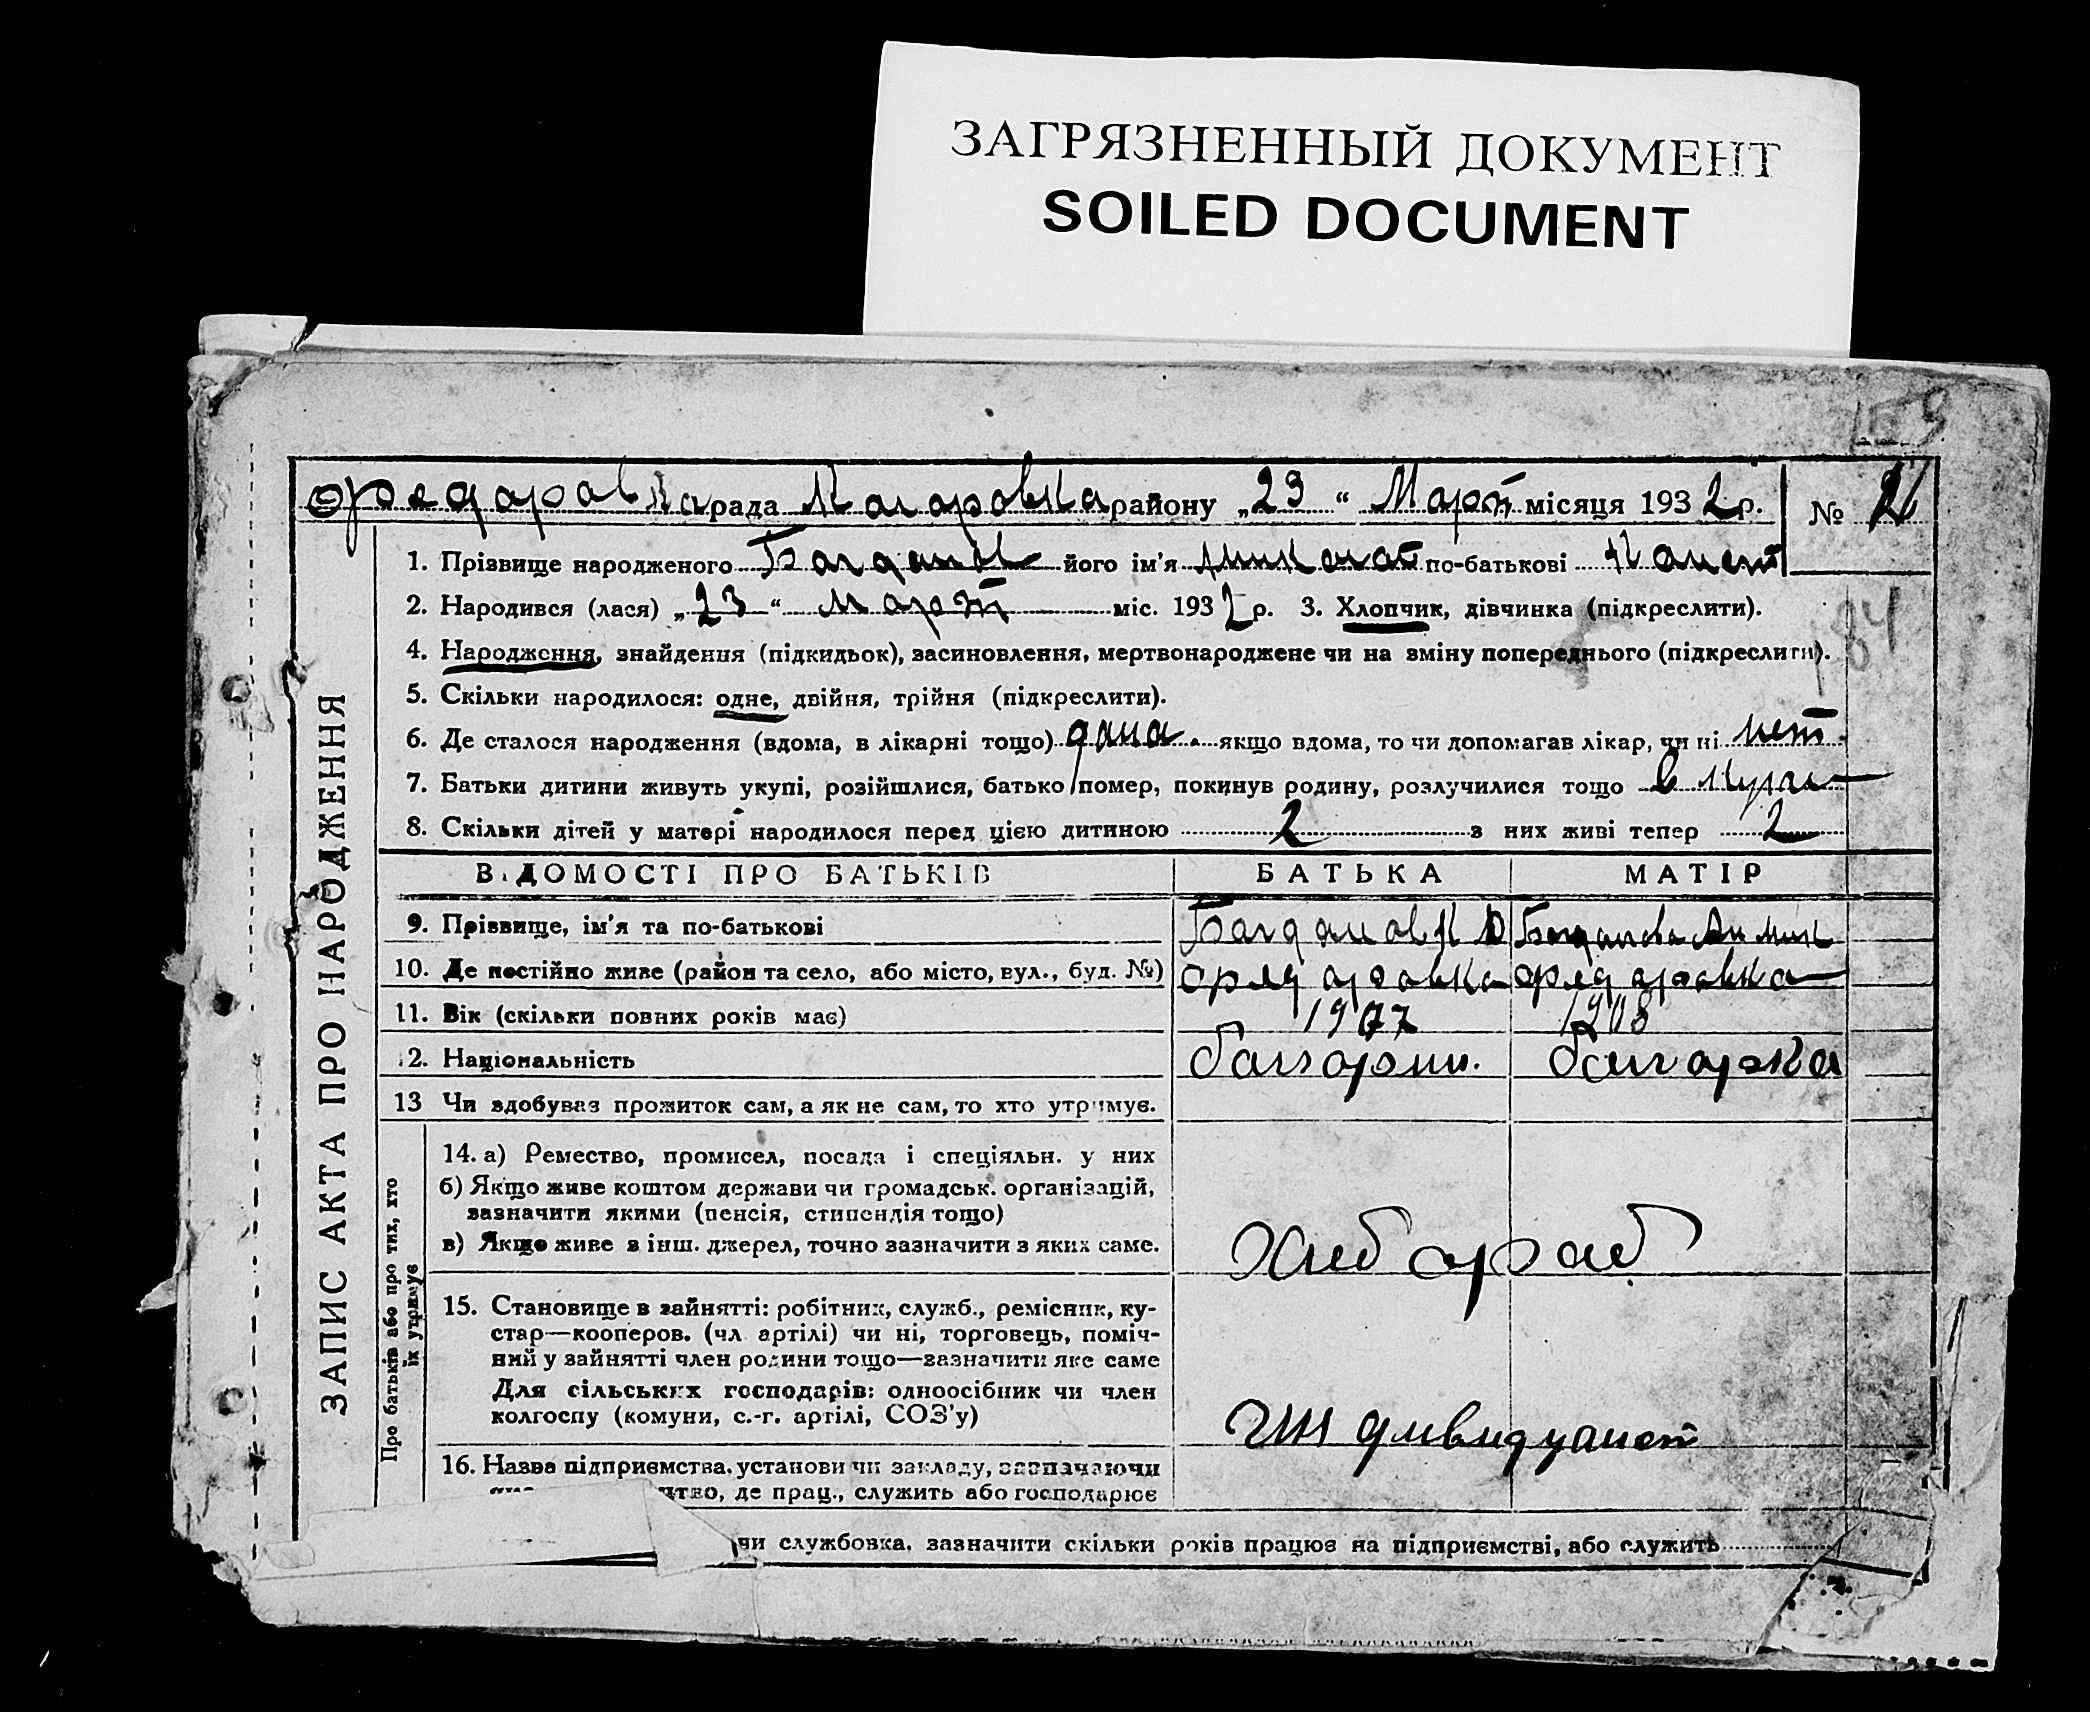 ЗАГРЯЗНЕННЫЙ ДОКУМЕНТ
SOILED DOCUMENT
рада район​у „23“ Март місяця 1932 р. №
1. Прізвище народженого його ім'я по-батькові
2. Народився (лася) „23“ март міс. 1932 р. 3. Хлопчик, дівчинка (підкреслити).
4. Народження, знайдення (підкидьок), засиновлення, мертвонароджене чи на зміну попереднього (підкреслити).
5. Скільки народилося: одне, двійня, трійня (підкреслити).
6. Де сталося народження (вдома, в лікарні тощо) дома. якщо вдома, то чи допомагав лікар, чи ні нет
7. Батьки дитини живуть укупі, розійшлися, батько помер, покинув родину, розлучилися тощо
8. Скільки дітей у матері народилося перед цією дитиною 2 з них живі тепер 2
ВІДОМОСТІ ПРО БАТЬКІВ БАТЬКА МАТІР
9. Прізвище, ім'я та по-батькові
10. Де постійно живе (район та село, або місто, вул., буд. №)
11. Вік (скільки повних років має) 1907 1908
12. Національність болгорин. болгорка
13 Чи здобуваз прожиток сам, а як не сам, то хто утримує.
14. а) Ремество, промисел, посада і спеціяльн. у них
б) Якщо живе коштом держави чи громадськ. організацій,
зазначити якими (пенсія, стипендія тощо)
в) Якщо живе з інш. джерел, точно зазначити з яких саме.
хлебороб
15. Становище в зайнятті: робітник, служб., ремісник, ку-
стар—кооперов. (чл артілі) чи ні, торговець, поміч-
ний у зайнятті член родини тощо—зазначити яке саме
Для сільських господарів: одноосібник чи член
колгоспу (комуни, с.-г. артілі, СОЗ'у)
16. Назва підприємства, установи чи закладу, зазначаючи
де прац., служить або господарює
чи службовка, зазначити скільки років працює на підприємстві, або служить
ЗАПИС АКТА ПРО НАРОДЖЕННЯ
Про батьків або про тих, хто
їх утримує